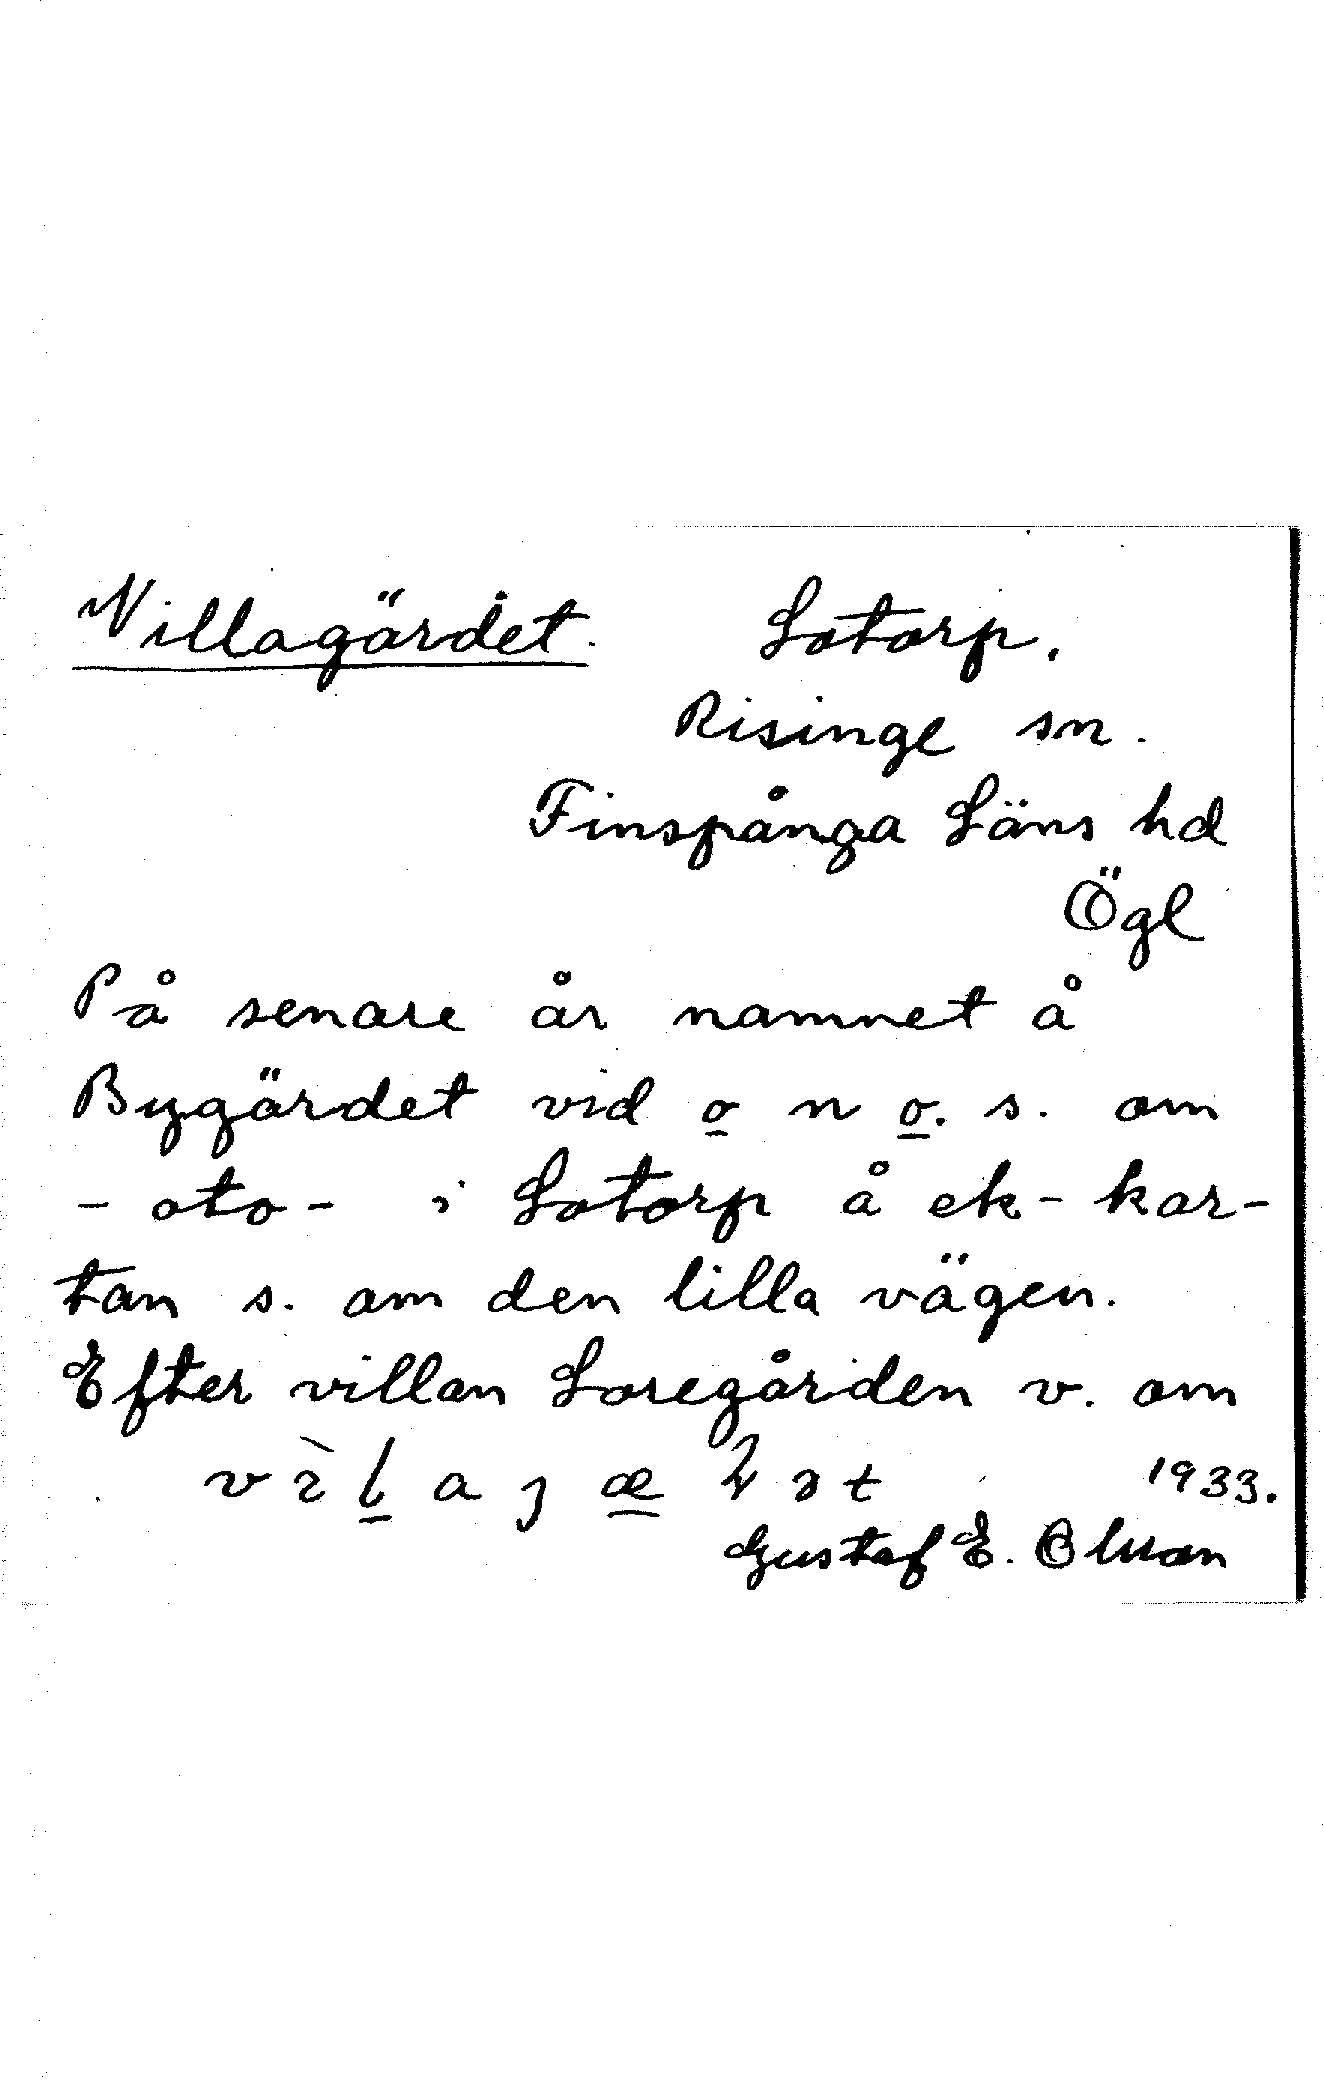 Villagärdet. Lotorp.
Risinge sn.
Finspånga Läns hd
Ögl
På senare år namnet å
Bygärdet vid o n o. s. om
- oto - i Lotorp å ek-kar-
tan s. om den lilla vägen.
Efter villan Loregården v. om
1933.
Gustaf E.